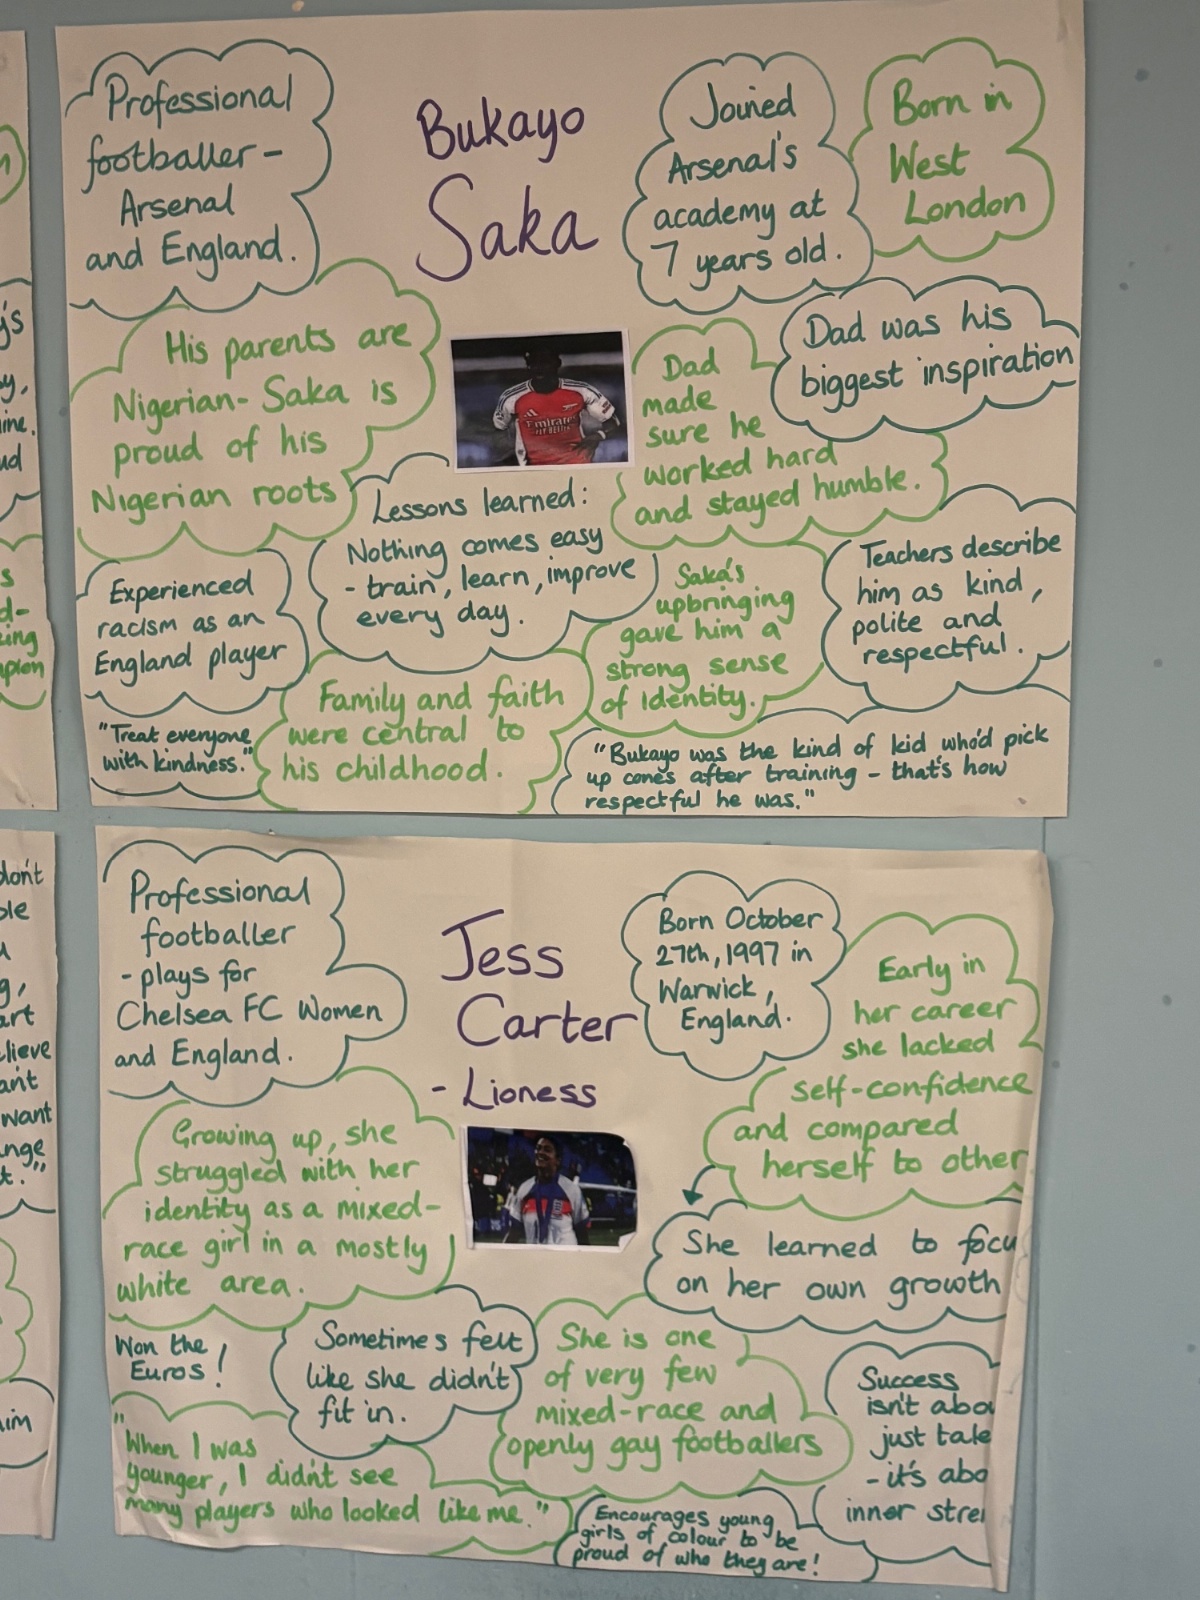 Professional
footballer -
Arsenal
and England.
Bukayo
Saka
Joined
Arsenal's
academy at
7 years old.
Born in
West
London
His parents are
Nigerian- Saka is
proud of his
Nigerian roots
Emirates
FLY BETTER
Dad
made
sure he
worked hard
and stayed humble.
Dad was his
biggest inspiration
Lessons learned:
Nothing comes easy
- train, learn, improve
every day.
Experienced
racism as an
England player
Saka's
upbringing
gave him a
strong sense
of identity.
Teachers describe
him as kind,
polite and
respectful.
"Treat everyone
with kindness."
Family and faith
were central to
his childhood.
"Bukayo was the kind of kid who'd pick
up cones after training - that's how
respectful he was."
Professional
footballer
- plays for
Chelsea FC Women
and England.
Jess
Carter
- Lioness
Born October
27th, 1997 in
Warwick,
England.
Early in
her career
she lacked
self-confidence
and compared
herself to other
She learned to focu
on her own growth
Growing up, she
struggled with her
identity as a mixed-
race girl in a mostly
white area.
Won the
Euros!
Sometimes felt
like she didn't
fit in.
She is one
of very few
mixed-race and
openly gay footballers
Success
isn't abou
just tale
- it's abo
inner stren
"When I was
younger, I didn't see
many players who looked like me."
Encourages young
girls of colour to be
proud of who they are!
don't
want